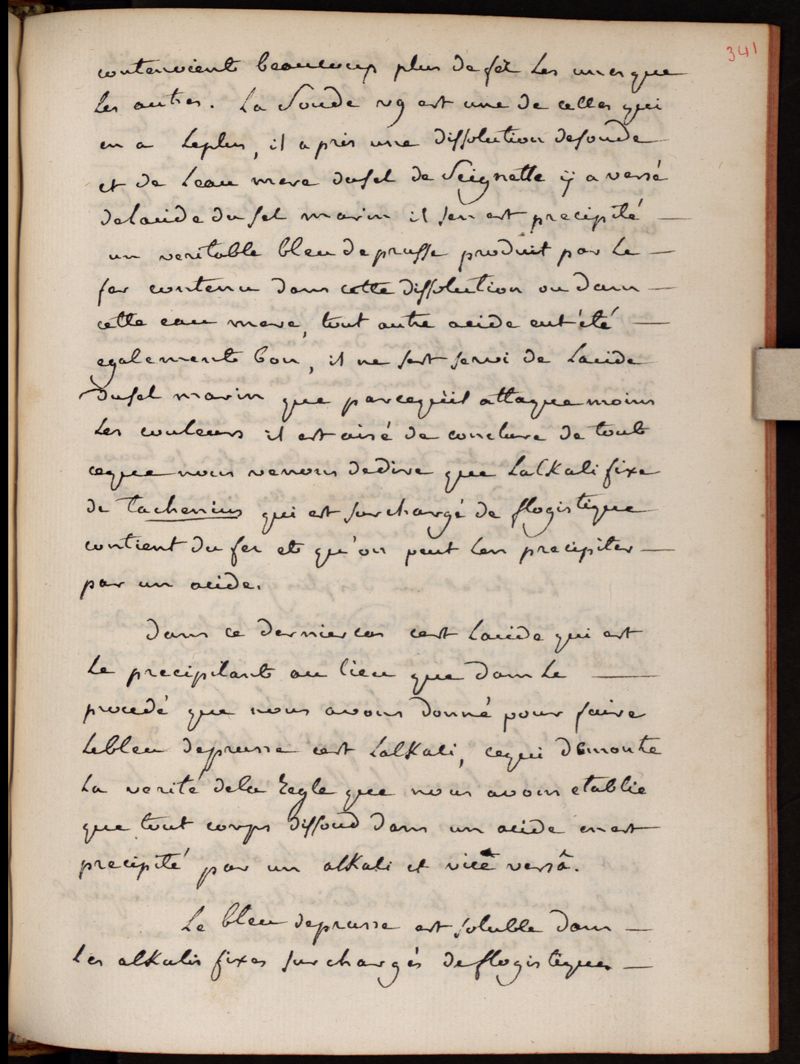 341
contenoient beaucoup plus de fer les unes que
les autres. La Soude vg est une de celles qui
en a leplus, il a pris une dissolution desoude
et de Leau mere dusel de Seignette ÿ a versé
delacide du sel marin il sen est precipité —
un veritable bleu deprusse produit par Le —
fer contenu dans cette dissolution ou dans —
cette eau mere, tout autre acide eut été —
egalement bon, il ne sest servi de Lacide
Dusel marin que parcequ'il attaque moins
Les couleurs il est aisé de conclure de tout
ceque nous venons dedire que Lalkali fixe
de tachenius qui est surchargé de flogistique
contient du fer et qu'on peut len precipiter —
par un acide.
Dans ce derniercas cest Lacide qui est
le precipitant au lieu que dans Le —
procedé que nous avons donné pour faire
Lebleu deprusse cest Lalkali, cequi demonte
La verité dela regle que nous avons etablie
que tout corps dissoud dans un acide en est
precipité par un alkali et vice versâ.
Le bleu deprusse est soluble dans —
Les alkalis fixes surchargés deflogistique —